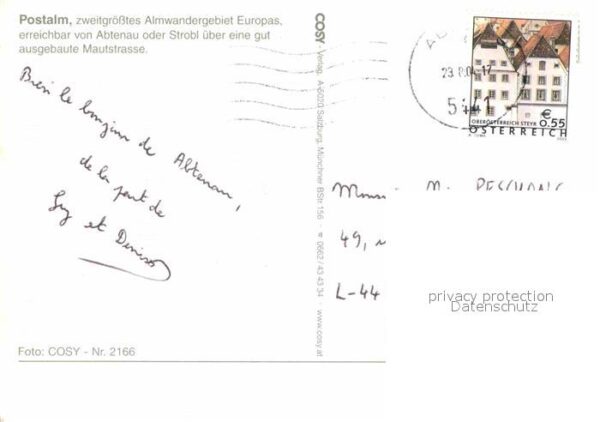 Postalm, zweitgrößtes Almwandergebiet Europas,
erreichbar von Abtenau oder Strobl über eine gut
ausgebaute Mautstrasse.
Bien le bonjour de Abtenau,
de la part de
Guy et Denise
Foto: COSY - Nr. 2166
COSY - Verlag, A-5020 Salzburg, Münchner BStr. 156 - 0662/43 43 34 - www.cosy.at
5441
€
0.55
OBERÖSTERREICH STEYR
ÖSTERREICH
M.
49,
L-44
privacy protection
Datenschutz